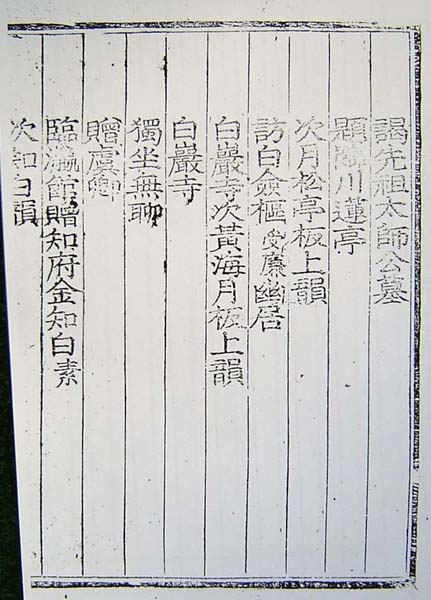 謁先祖太師公墓
題川蓮亭
次月松亭板上韻
訪白僉樞受廉幽居
白巖寺次黃海月板上韻
白巖寺
獨坐無聊
贈虞卿
臨瀛館贈知府金知白素
次知白韻